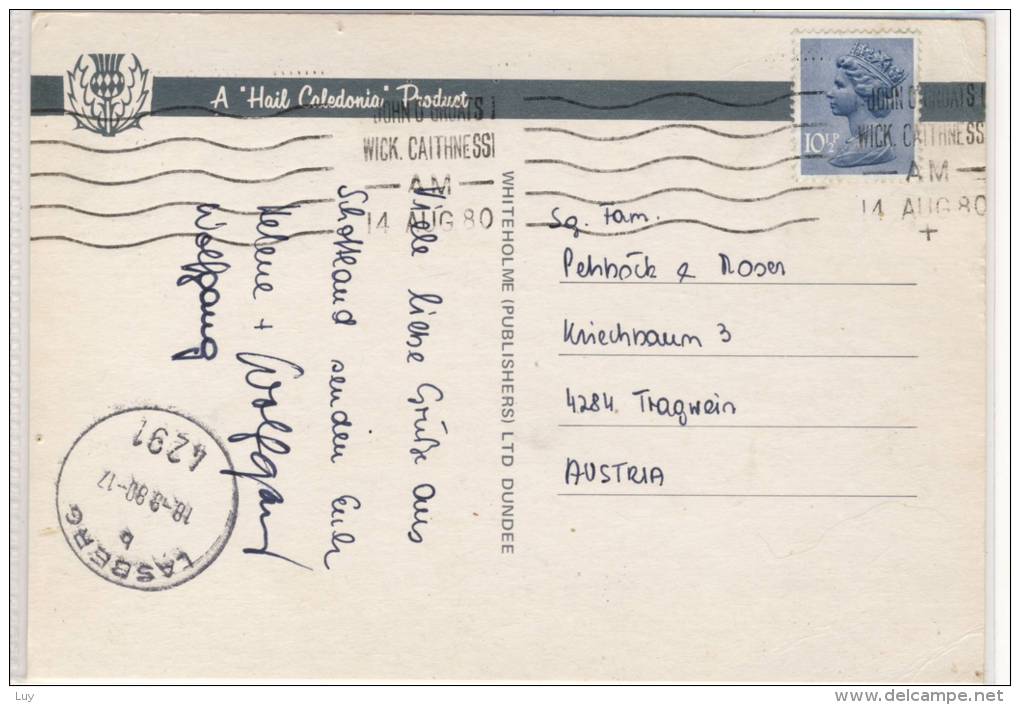 A "Hail Caledonia" Product
JOHN O'GROATS
WICK. CAITHNESS
AM
14 AUG 80
10½P
JOHN O'GROATS
WICK. CAITHNESS
AM
14 AUG 80
Viele liebe Grüße aus
Schottland senden Euch
Helene + Wolfgang
Wolfgang
WHITEHOLME (PUBLISHERS) LTD DUNDEE
Sg. Fam.
& Moser
Kriechbaum 3
4284 Tragwein
AUSTRIA
4291
80-17
b
LASBERG
Luy
www.delcampe.net